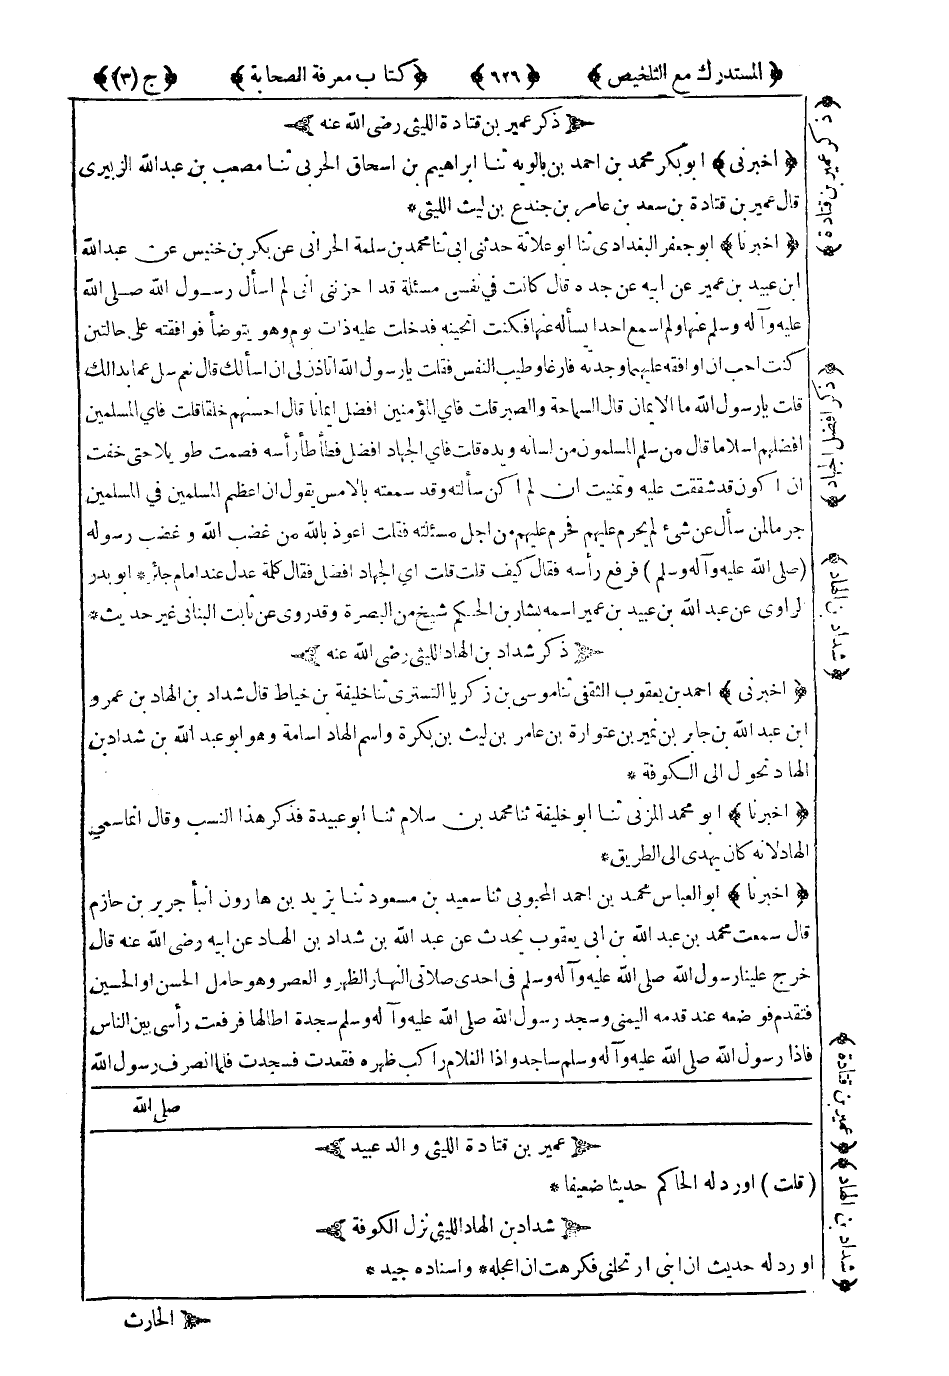 ﴿ المستدرك مع التلخيص ﴾ ﴿ ٦٢٦ ﴾ ﴿ كتاب معرفة الصحابة ﴾ ﴿ ج (٣) ﴾
ذكر عمير بن قتادة الليثى رضى الله عنه
﴿ اخبرنى ﴾ ابوبكر محمد بن احمد بن بالويه ثنا ابراهيم بن اسحاق الحربى ثنا مصعب بن عبدالله الزبيرى
قال عمير بن قتادة بن سعد بن عامر بن جندع بن ليث الليثى *
﴿ اخبرنا ﴾ ابوجعفر البغدادى ثنا ابوعلاثة حدثنى ابى ثنا محمد بن سلمة الحرانى عن بكر بن خنيس عن عبدالله
ابن عبيد بن عمير عن ابيه عن جده قال كانت فى نفسى مسئلة قد احزننى انى لم اسأل رسول الله صلى الله
عليه وآله وسلم عنها ولم اسمع احدا يسأله عنها فكنت اتحينه فدخلت عليه ذات يوم وهو يتوضأ فوافقته على حالتين
كنت احب ان اوافقه عليهما وجدته فارغا وطيب النفس فقلت يا رسول الله اتاذن لى ان اسألك قال نعم سل عما بدالك
قلت يا رسول الله ما الايمان قال السماحة والصبر قلت فاى المؤمنين افضل ايمانا قال احسنهم خلقا قلت فاى المسلمين
افضلهم اسلاما قال من سلم المسلمون من لسانه ويده قلت فاى الجهاد افضل فطأطأ رأسه فصمت طويلا حتى خفت
ان اكون قد شققت عليه وتمنيت ان لم اكن سألته وقد سمعته بالامس يقول ان اعظم المسلمين فى المسلمين
جرما لمن سأل عن شئ لم يحرم عليهم فحرم عليهم من اجل مسئلته فقلت اعوذ بالله من غضب الله وغضب رسوله
(صلى الله عليه وآله وسلم) فرفع رأسه فقال كيف قلت قلت اى الجهاد افضل فقال كلمة عدل عند امام جائر * ابو بدر
لراوى عن عبد الله بن عبيد بن عمير اسمه بشار بن الحكم شيخ من البصرة وقد روى عن ثابت البنانى غير حديث *
ذكر شداد بن الهاد الليثى رضى الله عنه
﴿ اخبرنى ﴾ احمد بن يعقوب الثقفى ثنا موسى بن زكريا التسترى ثنا خليفة بن خياط قال شداد بن الهاد بن عمرو
ابن عبد الله بن جابر بن نمير بن عتوارة بن عامر بن ليث بن بكرة واسم الهاد اسامة وهو ابو عبد الله بن شداد بن
الهاد تحول الى الكوفة *
﴿ اخبرنا ﴾ ابو محمد المزنى ثنا ابو خليفة ثنا محمد بن سلام ثنا ابو عبيدة فذكر هذا النسب وقال انما سمى
الهاد لانه كان يهدى الى الطريق *
﴿ اخبرنا ﴾ ابوالعباس محمد بن احمد المحبوبى ثنا سعيد بن مسعود ثنا يزيد بن هارون انبأ جرير بن حازم
قال سمعت محمد بن عبد الله بن ابى يعقوب يحدث عن عبد الله بن شداد بن الهاد عن ابيه رضى الله عنه قال
خرج علينا رسول الله صلى الله عليه وآله وسلم فى احدى صلاتى النهار الظهر و العصر وهو حامل الحسن او الحسين
فتقدم فوضعه عند قدمه اليمنى وسجد رسول الله صلى الله عليه وآله وسلم سجدة اطالها فرفعت رأسى بين الناس
فاذا رسول الله صلى الله عليه وآله وسلم ساجد واذا الغلام راكب ظهره فقعدت فسجدت فلما انصرف رسول الله
صلى الله
عمير بن قتادة الليثى والد عبيد
(قلت) اورد له الحاكم حديثا ضعيفا *
شداد بن الهاد الليثى نزل الكوفة
اورد له حديث ان ابنى ارتحلنى فكرهت ان اعجله * واسناده جيد *
الحارث
﴿ ذكر عمير بن قتادة ﴾
﴿ شداد بن الهاد ﴾
﴿ عمير بن قتادة ﴾
﴿ شداد بن الهاد ﴾